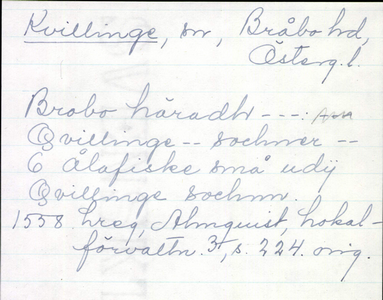 Kvillinge, sn, Bråbo hd,
Österg. l.
Brobo häradh ---:
Qvillinge -- sochner --
6 Ålafiske små udij
Qvillinge sochnn.
1558 hreg, Almquist, Lokal-
förvaltn. 3, s. 224. orig.